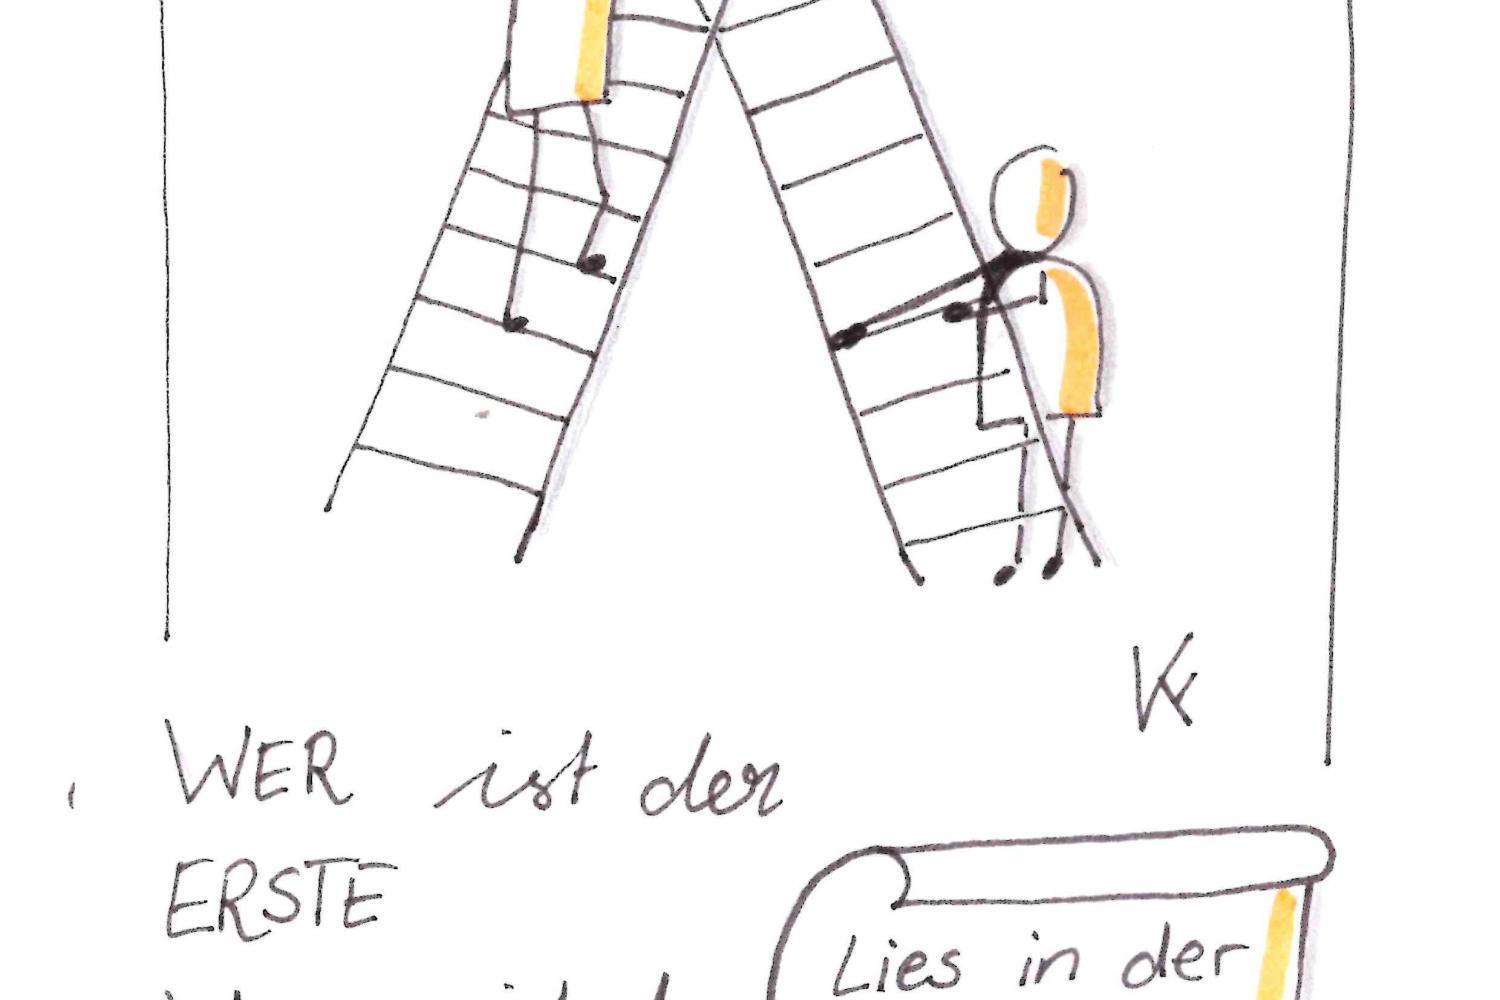 WER ist der
ERSTE
Lies in der